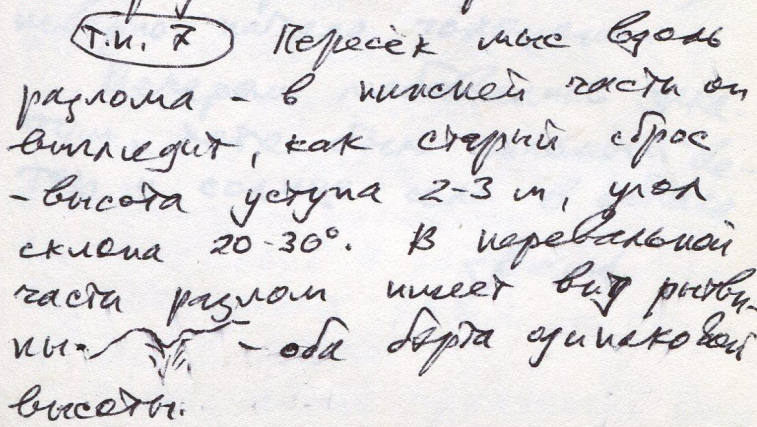 т.н. 7 Пересёк мыс вдоль
разлома - в нижней части он
выглядит, как старый сброс
- высота уступа 2-3 м, угол
склона 20-30°. В перевальной
части разлом имеет вид рытви-
ны - оба борта одинаковой
высоты.